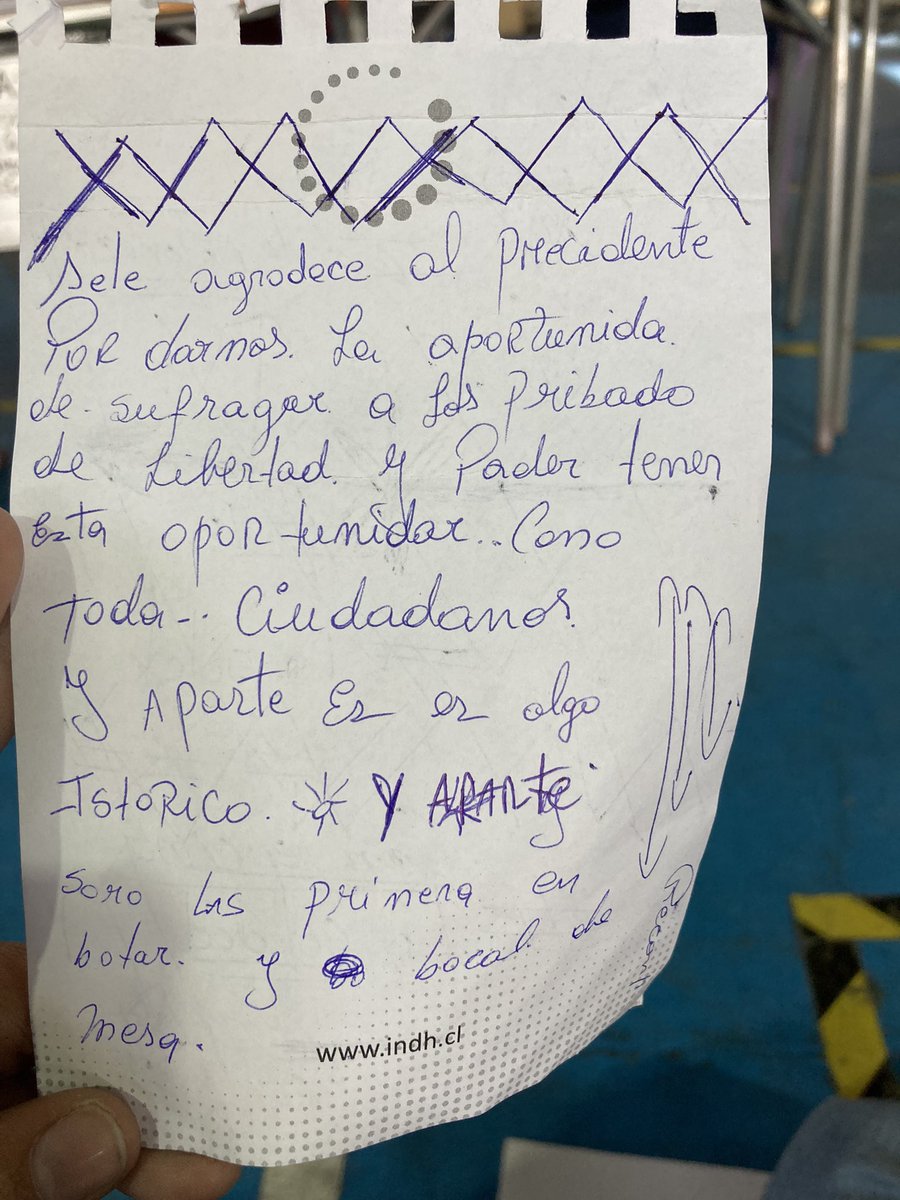 Sele agradece al precidente
Por darnos. La aportunida.
de. sufragar. a Los Pribado
de Libertad. y Pader tener
Ezta oportunidar.. Como
toda-.. Ciudadanos.
Y APARTE Ez ez algo
IstoRico. Y APARTE
soro Las primera en
botar. y bocal de
mesa.
www.indh.cl